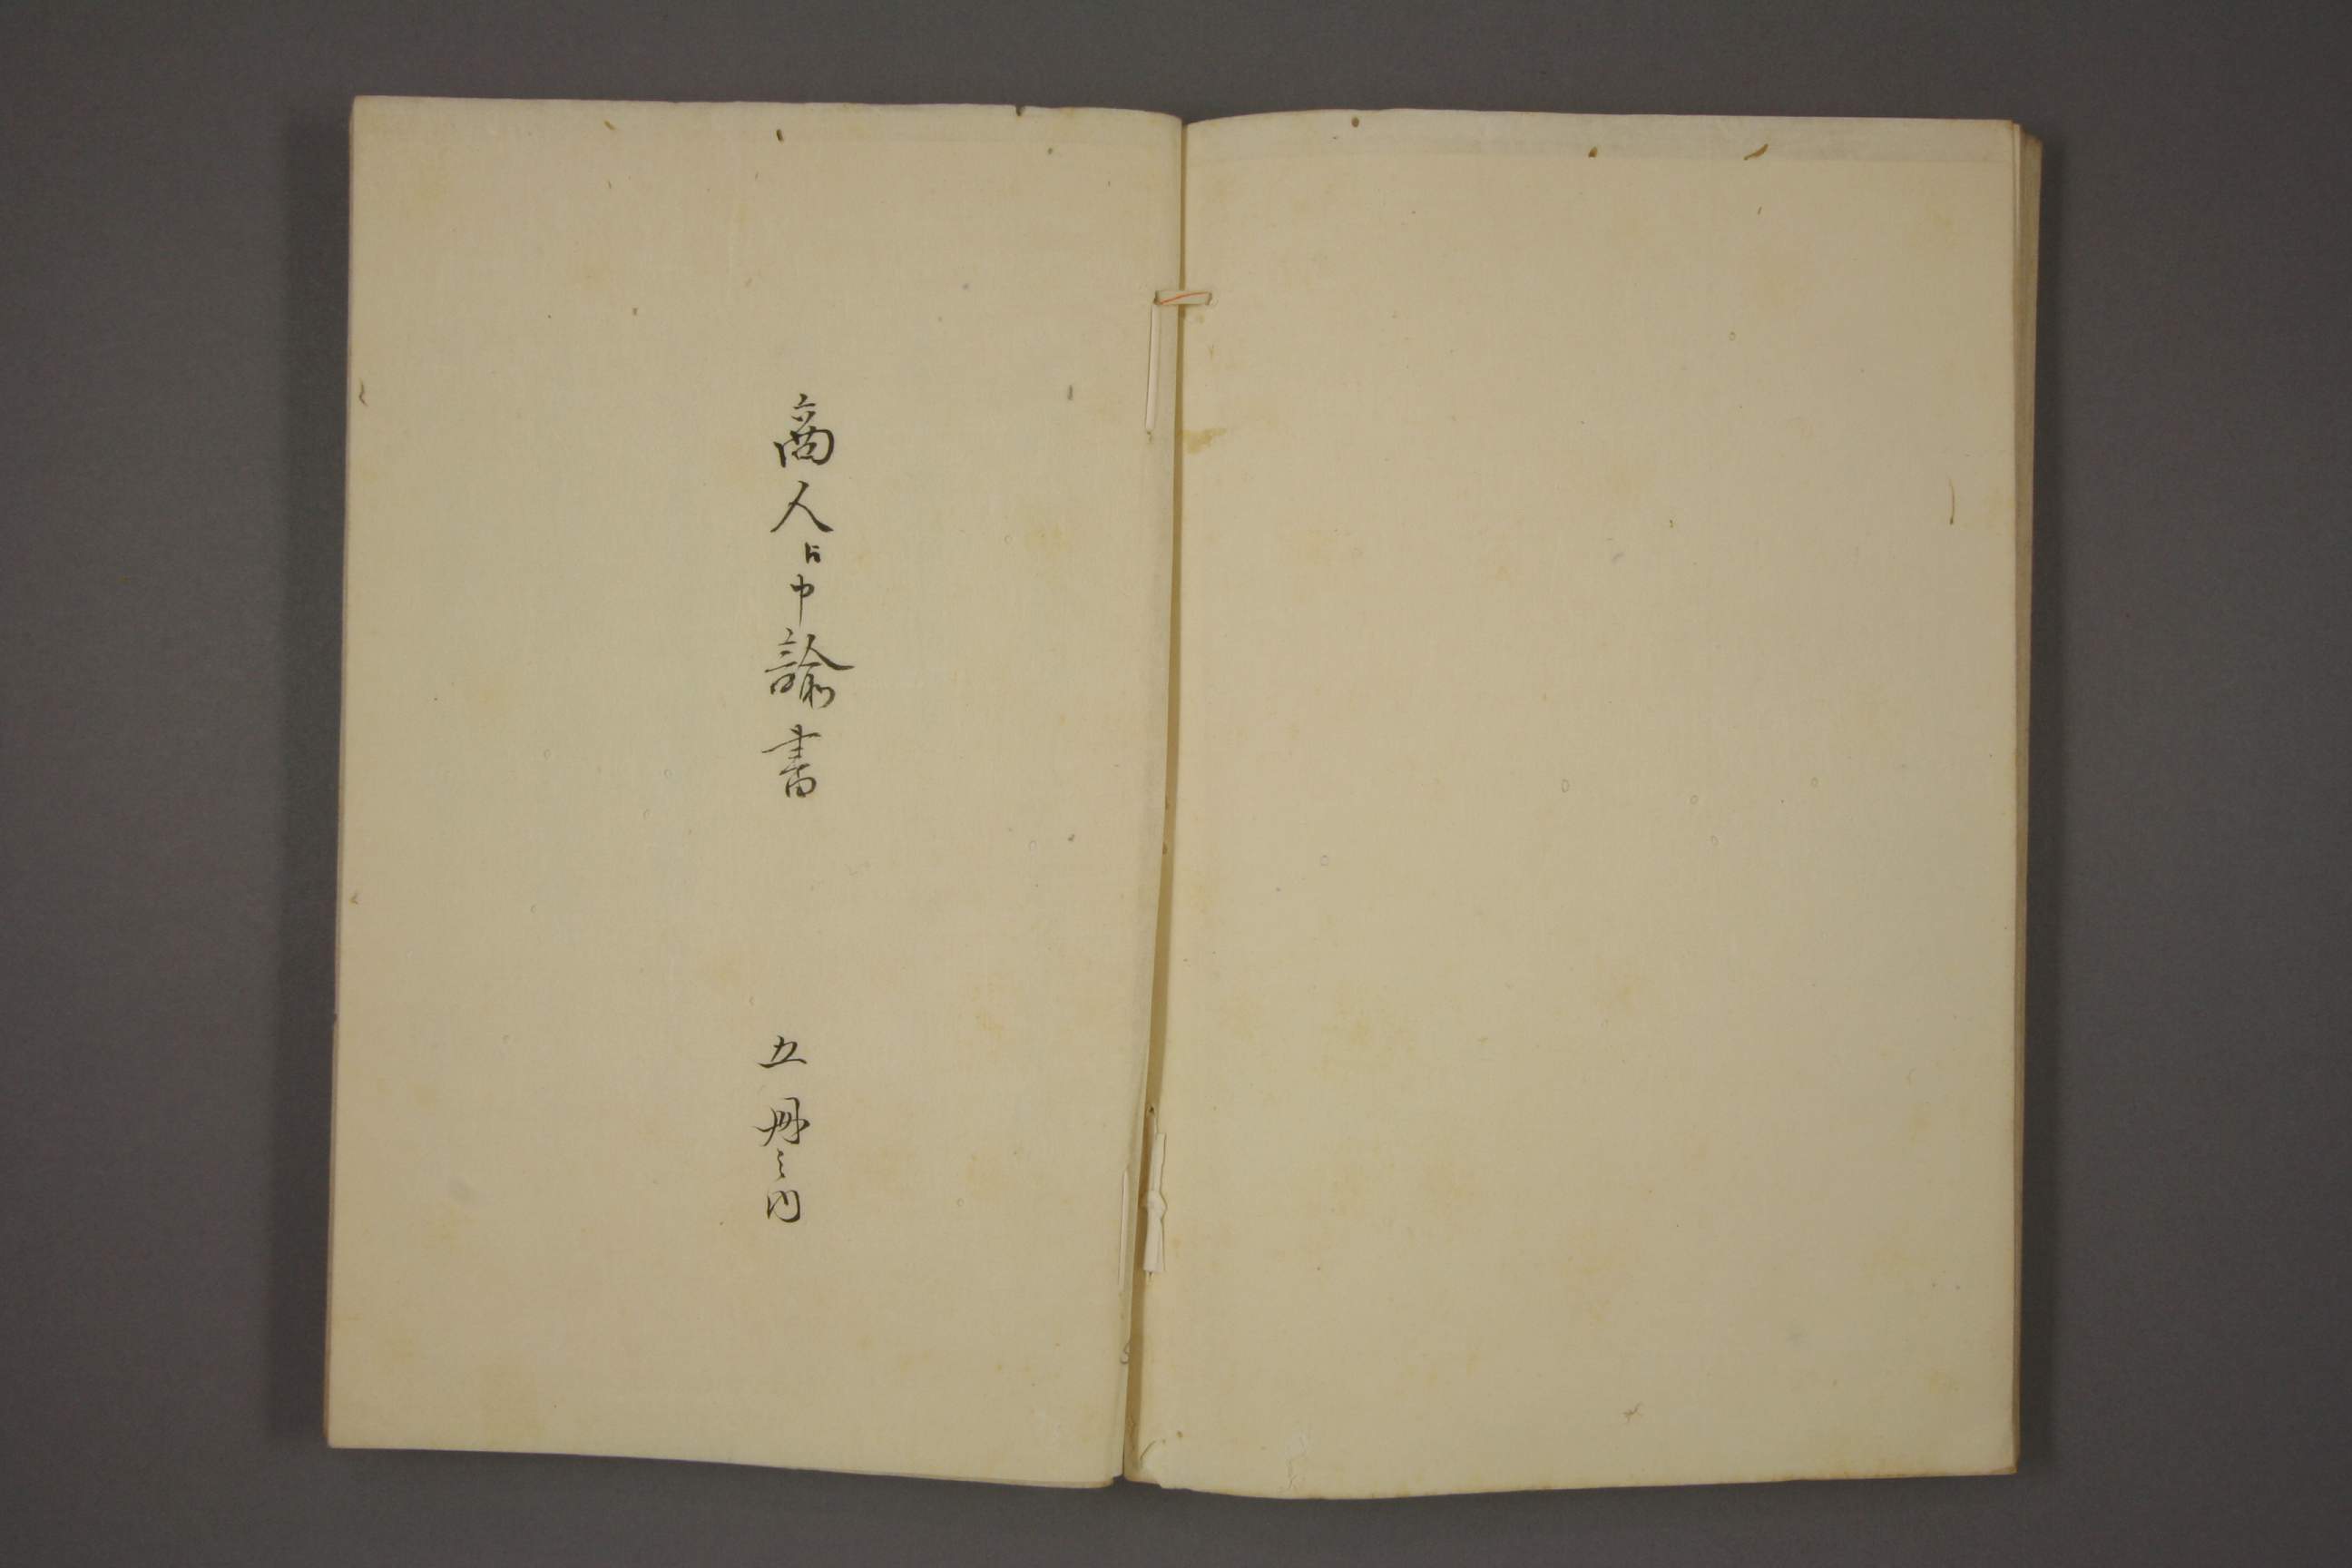 商人ゟ申諭書 五冊之内